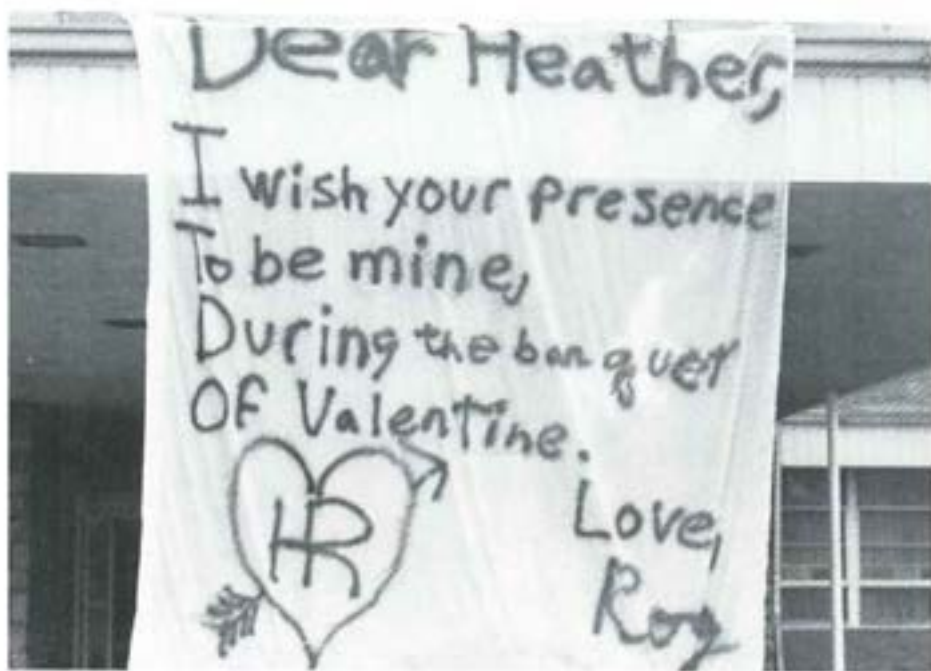 Dear Heather,
I wish your presence
To be mine,
During the banquet
Of Valentine.
HR
Love,